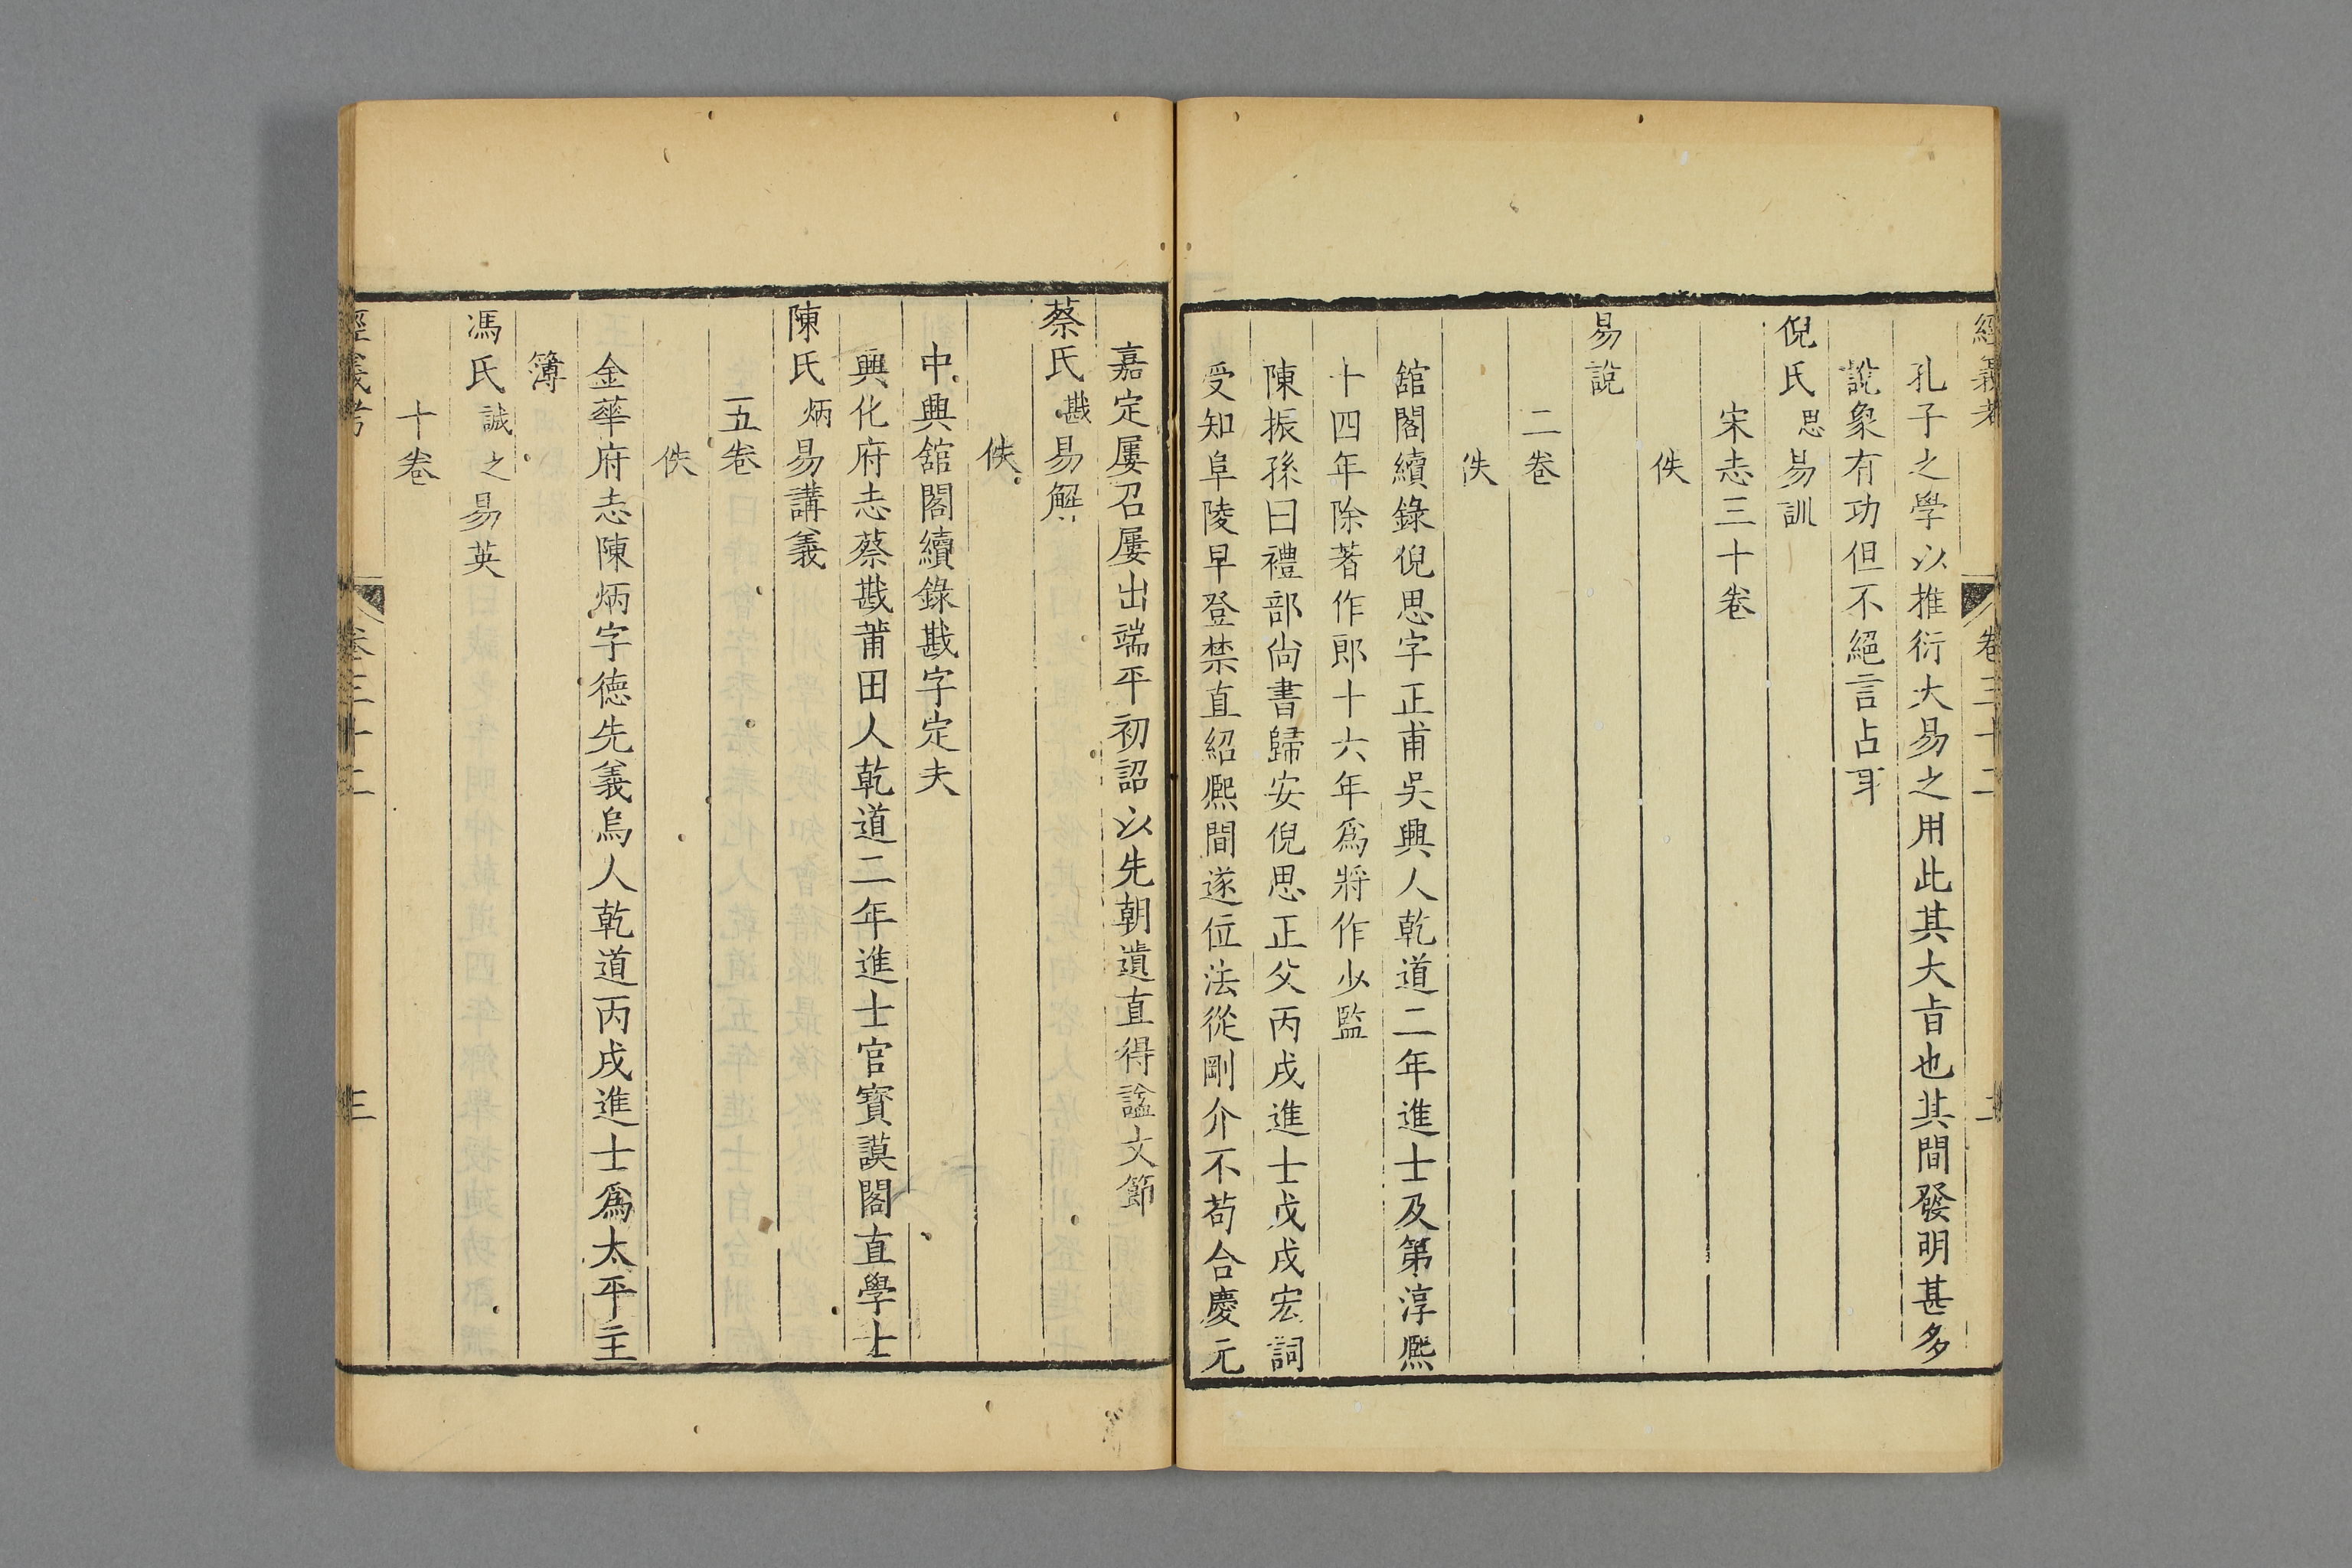 經義考 卷三十二 二
孔子之學以推衍大易之用此其大旨也其間發明甚多
說象有功但不絕言占耳
倪氏思易訓
宋志三十卷
佚
易說
二卷
佚
舘閣續錄倪思字正甫吳興人乾道二年進士及第淳熈
十四年除著作郎十六年爲將作少監
陳振孫曰禮部尙書歸安倪思正父丙戌進士戊戌宏詞
受知阜陵早登禁直紹熈間遂位法從剛介不苟合慶元
嘉定屢召屢出端平初詔以先朝遺直得諡文節
蔡氏戡易解
佚
中興舘閣續錄戡字定夫
興化府志蔡戡莆田人乾道二年進士官寶謨閣直學士
陳氏炳易講義
五卷
佚
金華府志陳炳字德先義烏人乾道丙戌進士爲太平主
簿
馮氏誠之易英
十卷
經義考 卷三十二 三